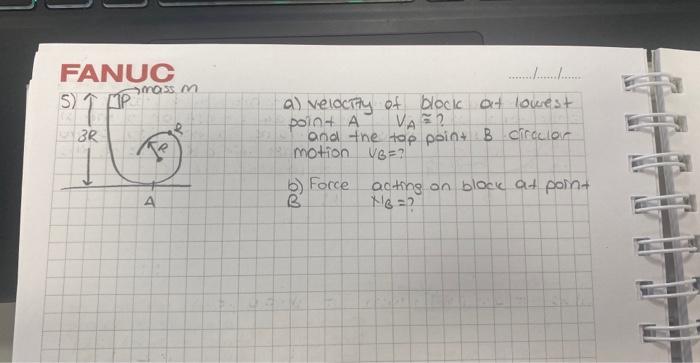 FANUC
....../....../......
5) P mass m
3R
R
R
A
a) velocity of block at lowest
point A VA ≅ ?
and the top point B circular
motion VB=?
b) Force acting on block at point
B NB=?